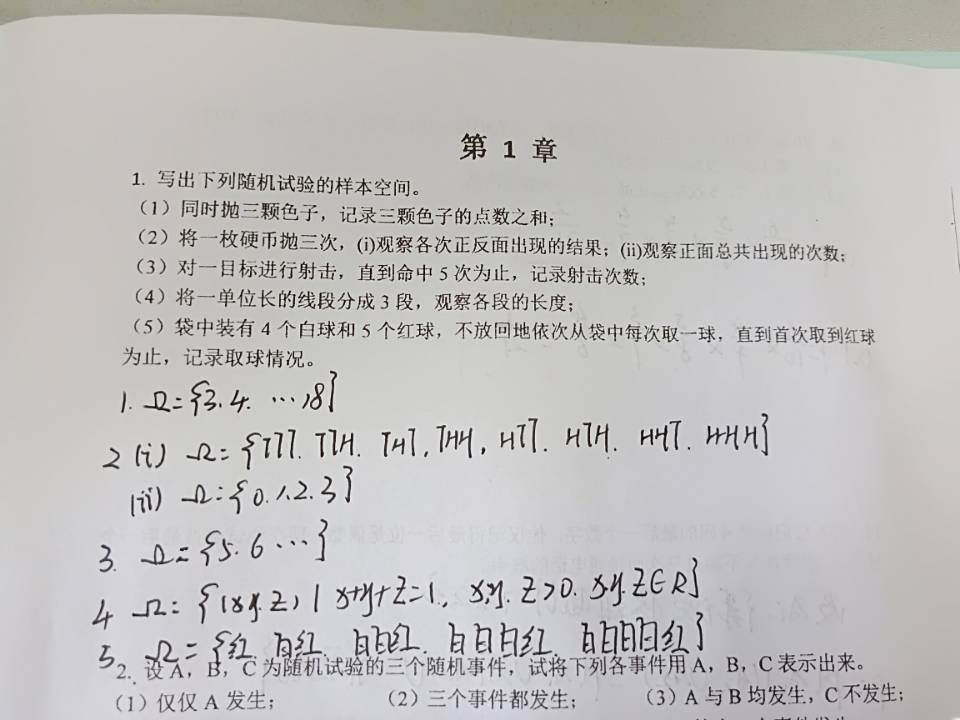 第 1 章
1. 写出下列随机试验的样本空间。
（1）同时抛三颗色子，记录三颗色子的点数之和；
（2）将一枚硬币抛三次，(i)观察各次正反面出现的结果；(ii)观察正面总共出现的次数；
（3）对一目标进行射击，直到命中 5 次为止，记录射击次数；
（4）将一单位长的线段分成 3 段，观察各段的长度；
（5）袋中装有 4 个白球和 5 个红球，不放回地依次从袋中每次取一球，直到首次取到红球
为止，记录取球情况。
1. Ω={3.4. …18}
2 (i) Ω={TTT. TTH. THT, THH, HTT. HTH. HHT. HHH}
(ii) Ω={0.1.2.3}
3. Ω={5.6 …}
4 Ω={(x.y.z) | x+y+z=1., x,y. z>0. x.y.z∈R}
5. Ω={红. 白红. 白白红. 白白白红. 白白白白红}
2. 设 A，B，C 为随机试验的三个随机事件，试将下列各事件用 A，B，C 表示出来。
（1）仅仅 A 发生；（2）三个事件都发生；（3）A 与 B 均发生，C 不发生；